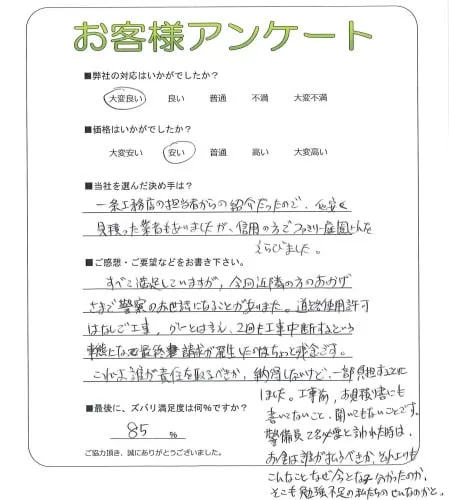 お客様アンケート
■弊社の対応はいかがでしたか?
大変良い 良い 普通 不満 大変不満
■価格はいかがでしたか?
大変安い 安い 普通 高い 大変高い
■当社を選んだ決め手は?
一条工務店の担当者からの紹介だったので、他安く
見積った業者も言いましたが、信用の方でファミリー庭園さんを
えらびました。
■ご感想・ご要望などをお書き下さい。
すべて満足していますが、今回近隣の方のおかげ
さまで警察のお世話になることがありました。道路使用許可
はなしで工事、 とは言え、2回も工事中断するという
事態になり最終 請求が発生したのはちょっと残念です。
これは誰が責任を取るべきか、納得しないけど、一部負担することに
しました。工事前、お見積り書にも
書いてないこと、聞いてもないことです。
警備員て必要と言われた時は、
お金は誰が払うべきか、それよりも
こんなことなぜ今となって分かったのか、
そこも勉強不足の私たちのせいなのかと。
■最後に、ズバリ満足度は何%ですか?
85 %
ご協力頂き、誠にありがとうございました。